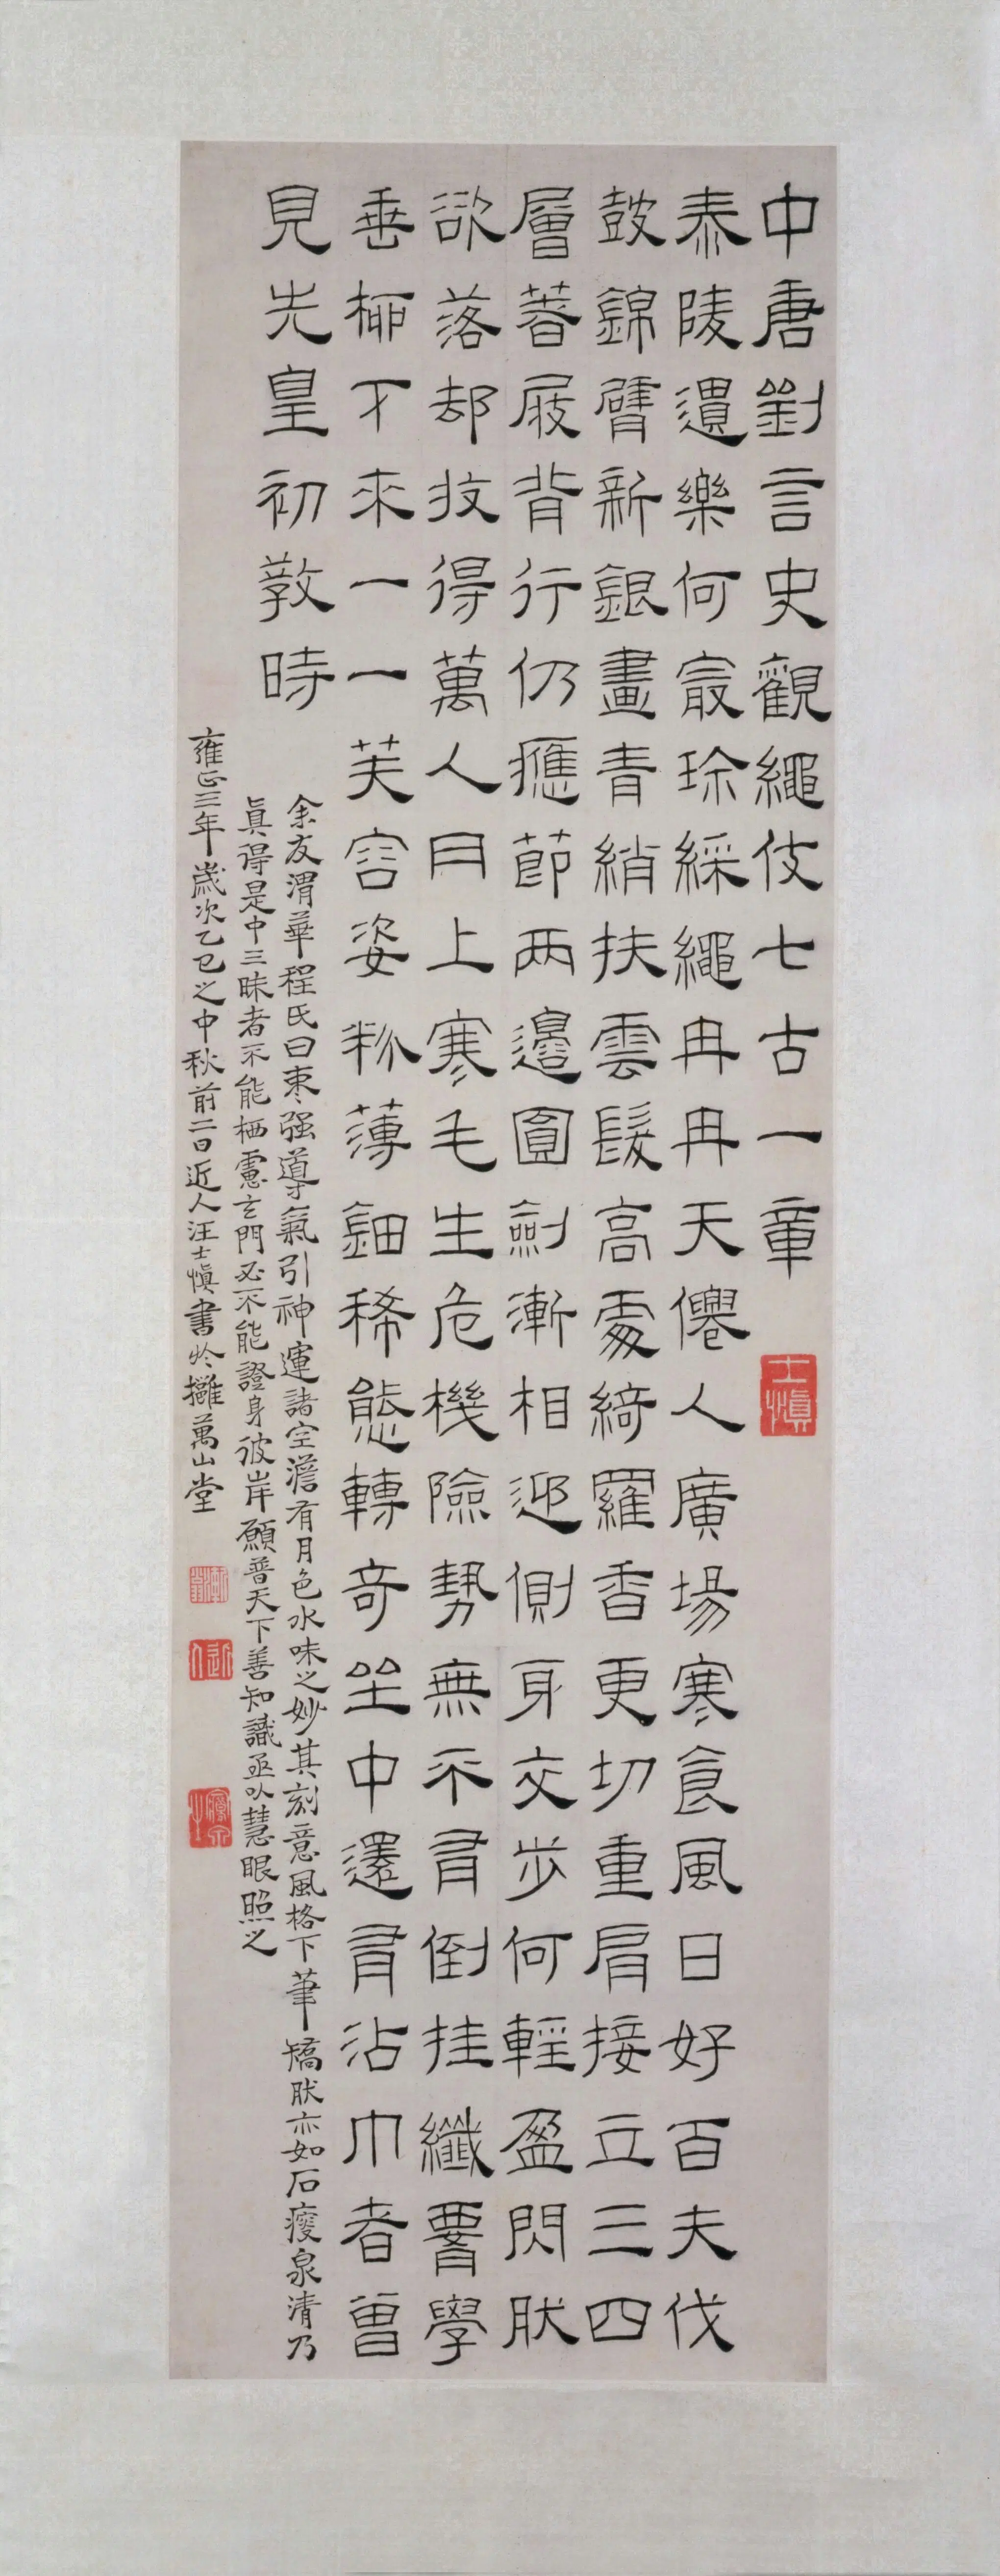 中唐劉言史觀繩伎七古一章
士慎
泰陵遺樂何最珍綵繩冉冉天僊人廣場寒食風日好百夫伐
鼓錦臂新銀畫青綃抹雲髮高處綺羅香更切重肩接立三四
層著屐背行仍應節兩邊圓劍漸相迎側身交步何輕盈閃肰
欲落却收得萬人肉上寒毛生危機險勢無不有倒挂纖腰學
垂柳下來一一芙容姿粉薄鈿稀態轉奇坐中還有沾巾者曾
見先皇初敎時
余友渭華程氏曰棗强導氣引神運諸空澹有月色水味之妙其刻意風格下筆矯肰亦如石瘦泉清乃
眞得是中三昧者不能栖慮玄門必不能證身彼岸願普天下善知識亟以慧眼照之
雍正三年歲次乙巳之中秋前二日近人汪士慎書於攤萬山堂
近人